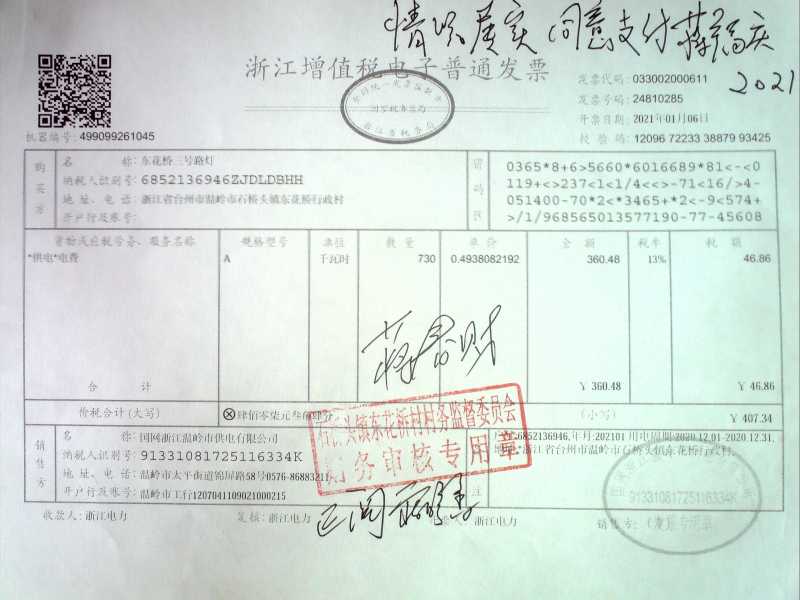 情况属实 同意支付
2021
浙江增值税电子普通发票
发票代码: 033002000611
发票号码: 24810285
开票日期: 2021年01月06日
校验码: 12096 72233 38879 93425
机器编号: 499099261045
购买方
名称: 东花桥三号路灯
纳税人识别号: 6852136946ZJDLDBHH
地址、电话: 浙江省台州市温岭市石桥头镇东花桥行政村
开户行及账号:
密码区
0365*8+6>5660*6016689*81<-<0
119+<>237<1<1/4<<>-71<16/>4-
051400-70*2<*3465+*2<-9<574+
>/1/968565013577190-77-45608
货物或应税劳务、服务名称 规格型号 单位 数量 单价 金额 税率 税额
*供电*电费 A 千瓦时 730 0.4938082192 360.48 13% 46.86
合计 ¥ 360.48 ¥ 46.86
价税合计(大写) ⊗肆佰零柒元叁角肆分 (小写) ¥ 407.34
石桥头镇东花桥村村务监督委员会
财务审核专用章
销售方
名称: 国网浙江温岭市供电有限公司
纳税人识别号: 91331081725116334K
地址、电话: 温岭市太平街道锦屏路58号0576-86883210
开户行及账号: 温岭市工行1207041109021000215
注
6852136946,年月:202101 用电周期:2020.12.01-2020.12.31,
地址:浙江省台州市温岭市石桥头镇东花桥行政村。
91331081725116334K
发票专用章
收款人: 浙江电力 复核: 浙江电力 浙江电力 销售方: